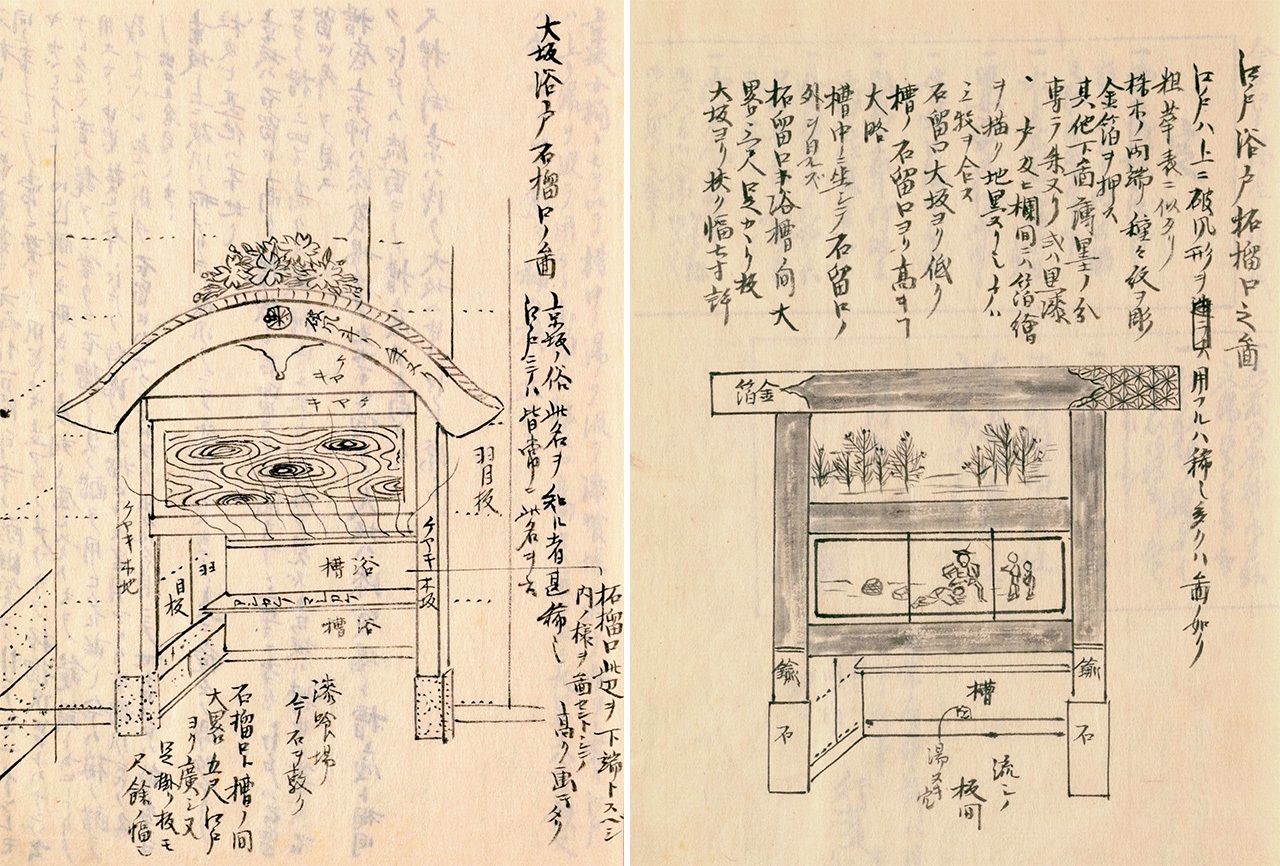 江戸浴戸柘榴口之圖
江戸ハ上ニ破風形ヲ 用フルハ稀也多クハ圖ノ如ク
粗華表ニ似タリ
株木ノ両端ニ種々紋ヲ彫
金箔ヲ押ス
其他下画薄墨ノ分
専ラ朱又ハ黒漆
欄間ニハ箔繪
ヲ描ク
三枚ヲ合セ
石留口大坂ヨリ低ク
槽ノ石留口ヨリ高キコ
大略
槽中ニ坐シテ石留口ノ
外ヲ見ズ
柘留口ト浴槽ノ間大
畧二三尺足カヽリ板
大坂ヨリ狭ク幅七寸許
金箔
鍮
鍮
石
石
槽
流シノ
板間
大坂浴戸石榴口ノ圖
京坂ノ俗此名ヲ知ル者甚稀也
江戸ニテハ皆常ニ此名ヲ云
ケヤキ
ケヤキ
羽目板
ケヤキ木地
ケヤキ木地
羽目板
浴槽
浴槽
柘榴口此辺ヲ下端トスベシ
内ノ様ヲ圖セントシテ
高ク画キタリ
漆喰場
今石ヲ敷ク
石榴口ト槽ノ間
大畧五尺江戸
ヨリ廣シ又
足掛リ板モ
尺餘ノ幅也